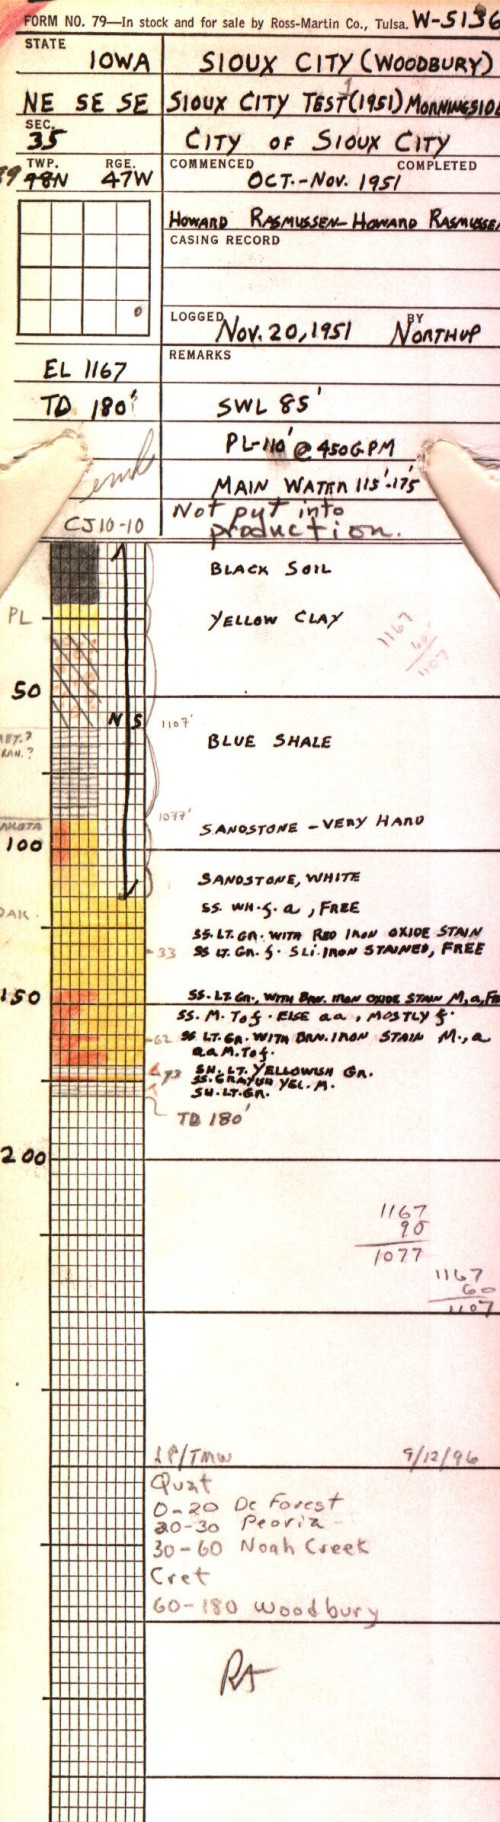 FORM NO. 79—In stock and for sale by Ross-Martin Co., Tulsa. W-5136
STATE
IOWA
SIOUX CITY (WOODBURY)
NE SE SE
SIOUX CITY TEST 1 (1951) MORNINGSIDE
SEC.
35
CITY OF SIOUX CITY
TWP. RGE.
89 98N 47W
COMMENCED COMPLETED
OCT.-NOV. 1951
HOWARD RASMUSSEN-HOWARD RASMUSSEN
CASING RECORD
LOGGED BY
NOV. 20, 1951 NORTHUP
EL 1167
REMARKS
TD 180'
SWL 85'
PL-110' @ 450GPM
MAIN WATER 115'-175'
CJ10-10
Not put into
production.
BLACK SOIL
PL
YELLOW CLAY
1167
60
1107
50
N S
1107'
BLUE SHALE
1077'
SANDSTONE - VERY HARD
100
SANDSTONE, WHITE
SS. WH. f. a, FREE
SS. LT. GR. WITH RED IRON OXIDE STAIN
33
SS LT. GR. f. SLI. IRON STAINED, FREE
150
SS. LT. GR., WITH BRN. IRON OXIDE STAIN M, a, FR
SS. M. TO f. ELSE aa, MOSTLY f.
62
SS LT. GR. WITH BRN. IRON STAIN M., a
aa M. TO f.
73
SH. LT. YELLOWISH GR.
SS. GRAYISH YEL. M.
SH. LT. GR.
TD 180'
200
1167
90
1077
1167
60
1107
LP/TMW 9/12/96
Quat
0-20 De Forest
20-30 Peoria
30-60 Noah Creek
Cret
60-180 Woodbury